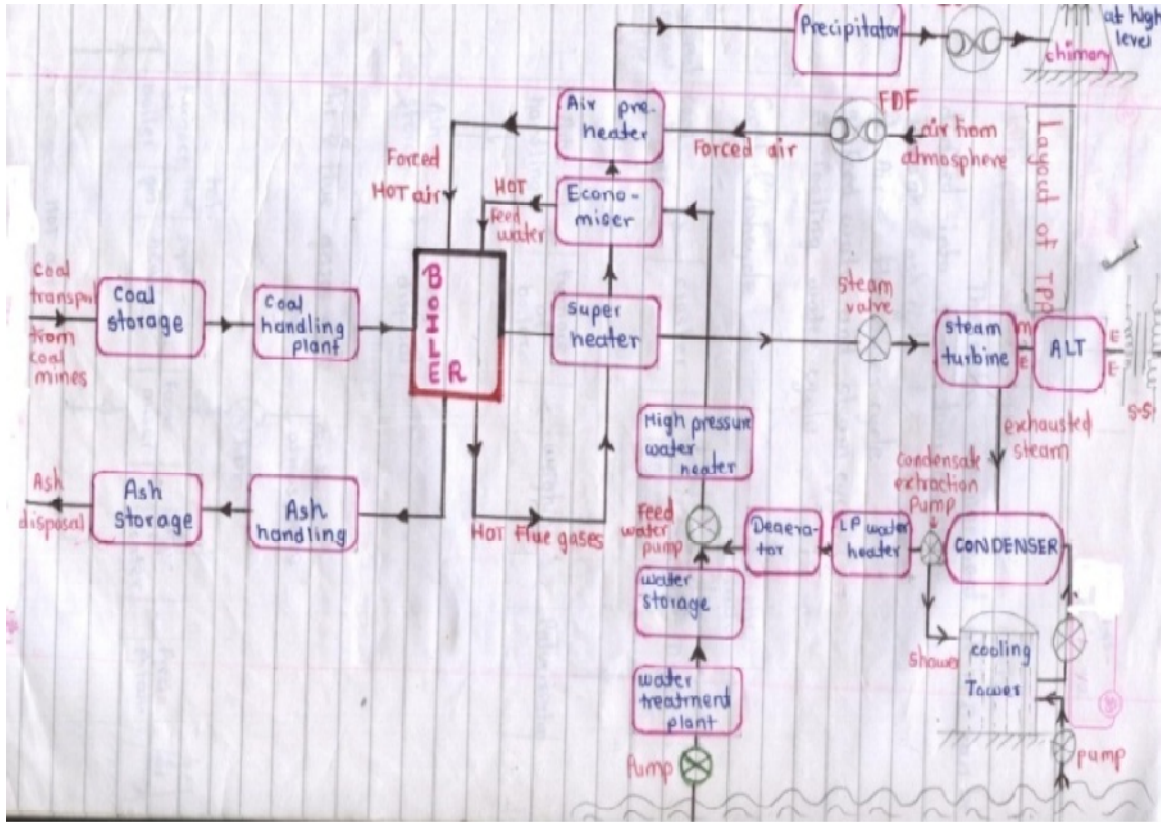 Precipitator
at high
level
chimany
Air pre-
heater
FDF
Forced air
air from
atmosphere
Layout of TPP
Forced
HOT air
HOT
Feed
water
Econo-
miser
BOILER
Coal
transpo
from
coal
mines
Coal
storage
Coal
handling
plant
super
heater
steam
valve
steam
turbine
M
E
ALT
E
E
S.S
exhausted
steam
High pressure
water
heater
Condensate
extraction
Pump
Ash
disposal
Ash
storage
Ash
handling
HOT Flue gases
Feed
water
pump
Deaera-
tor
LP water
heater
CONDENSER
water
storage
shower
cooling
Tower
water
treatment
plant
Pump
pump